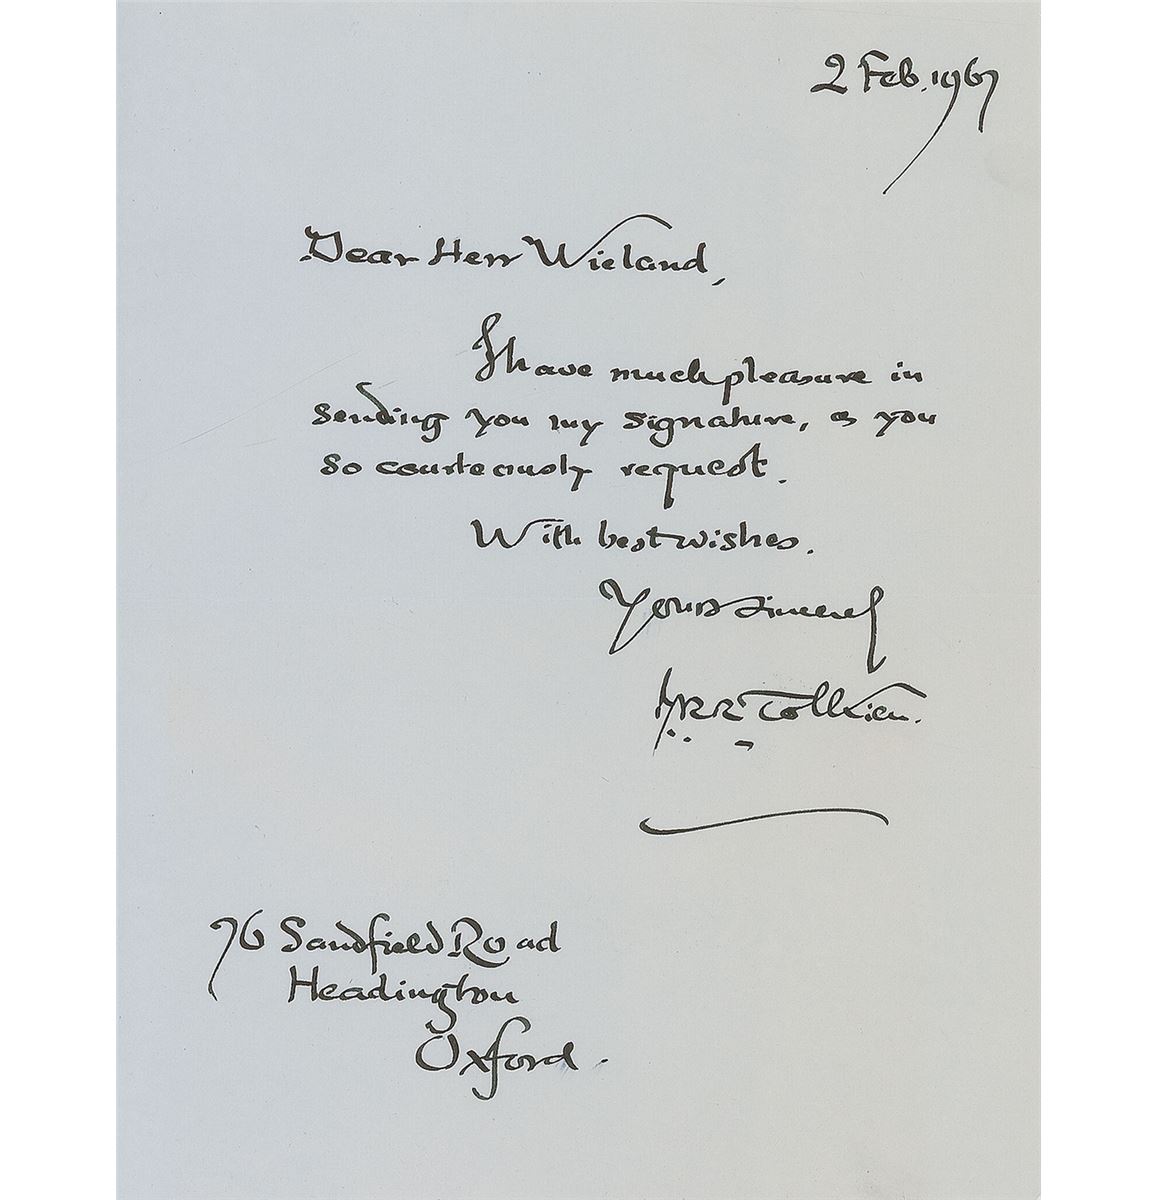 2 Feb. 1967
Dear Herr Wieland,
I have much pleasure in
sending you my signature, as you
so courteously request.
With best wishes.
Yours sincerely
J.R.R. Tolkien.
76 Sandfield Road
Headington
Oxford.